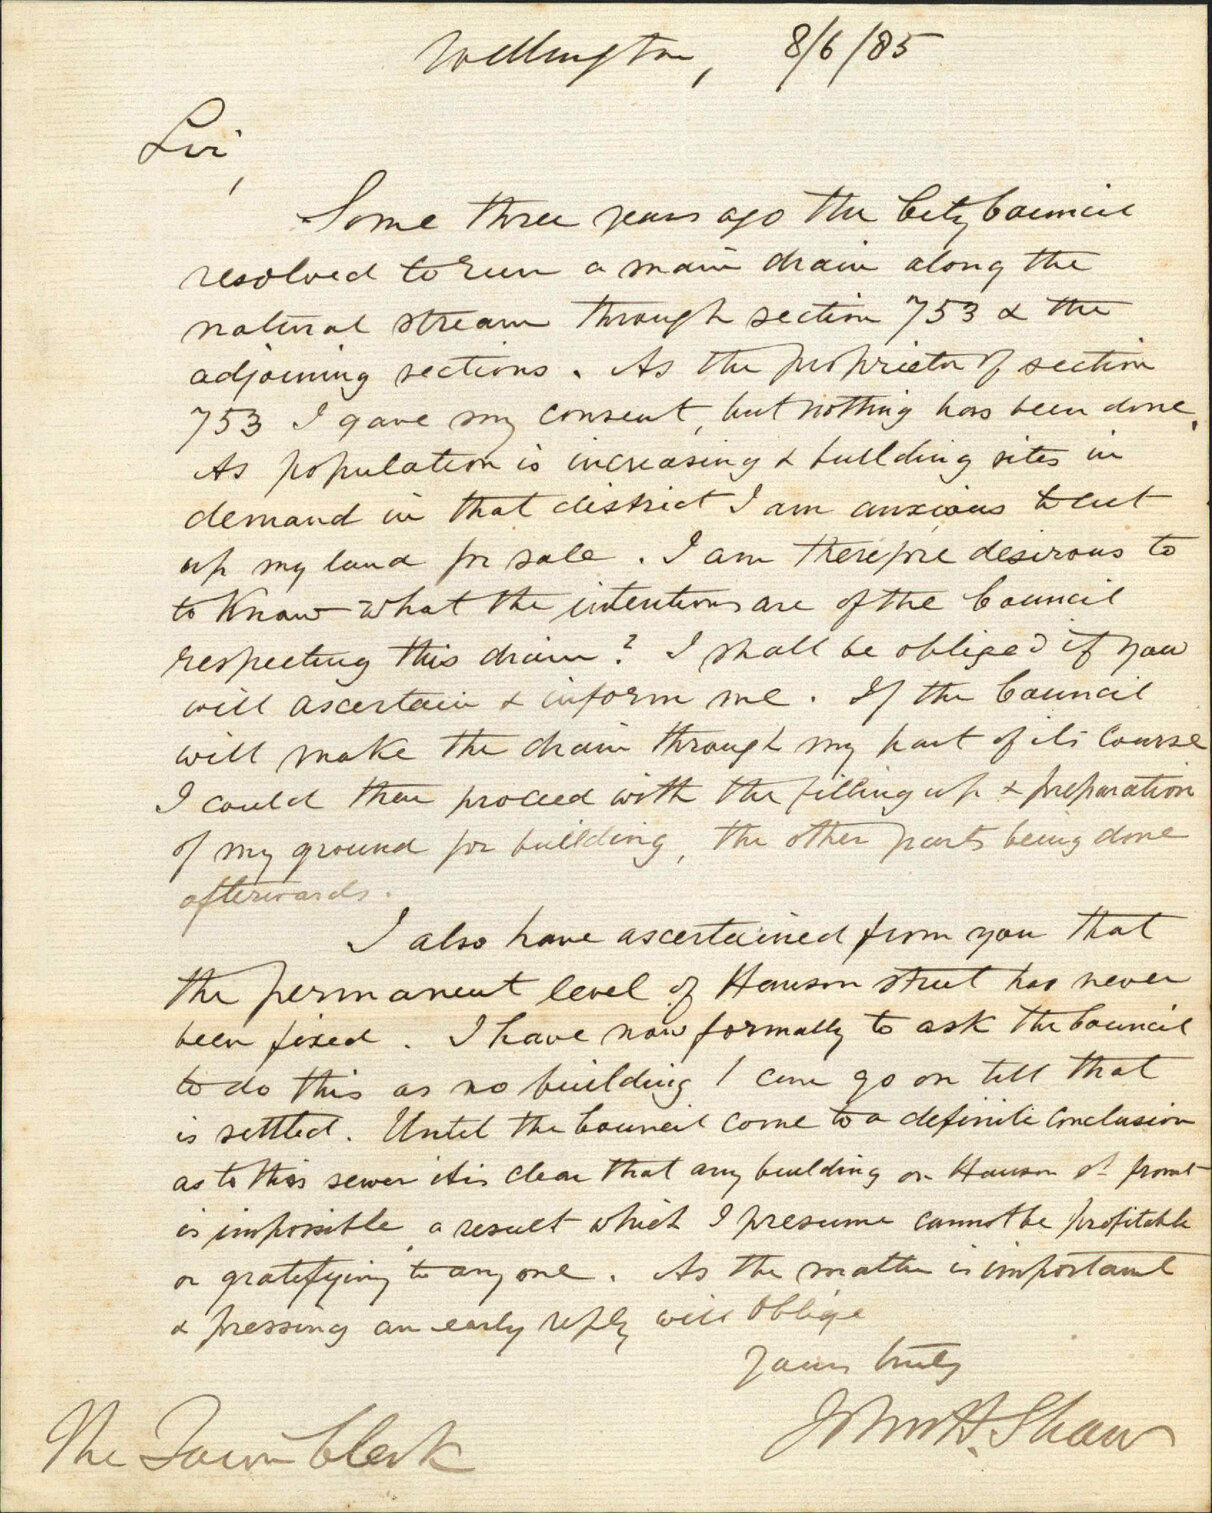 Wellington, 8/6/85
Sir,
Some three years ago the City Council
resolved to run a main drain along the
natural stream through section 753 & the
adjoining sections. As the proprietor of section
753 I gave my consent, but nothing has been done.
As population is increasing & building sites in
demand in that district I am anxious to cut
up my land for sale. I am therefore desirous to
to know what the intentions are of the Council
respecting this drain? I shall be obliged if you
will ascertain & inform me. If the Council
will make the drain through my part of its course
I could then proceed with the filling up & preparation
of my ground for building, the other parts being done
afterwards.
I also have ascertained from you that
the permanent level of Hanson street has never
been fixed. I have now formally to ask the Council
to do this as no building / can go on till that
is settled. Until the Council come to a definite conclusion
as to this sewer it is clear that any building on Hanson St front
is impossible, a result which I presume cannot be profitable
or gratifying to any one. As the matter is important
& pressing an early reply will oblige
Yours truly
John H. Shaw
The Town Clerk